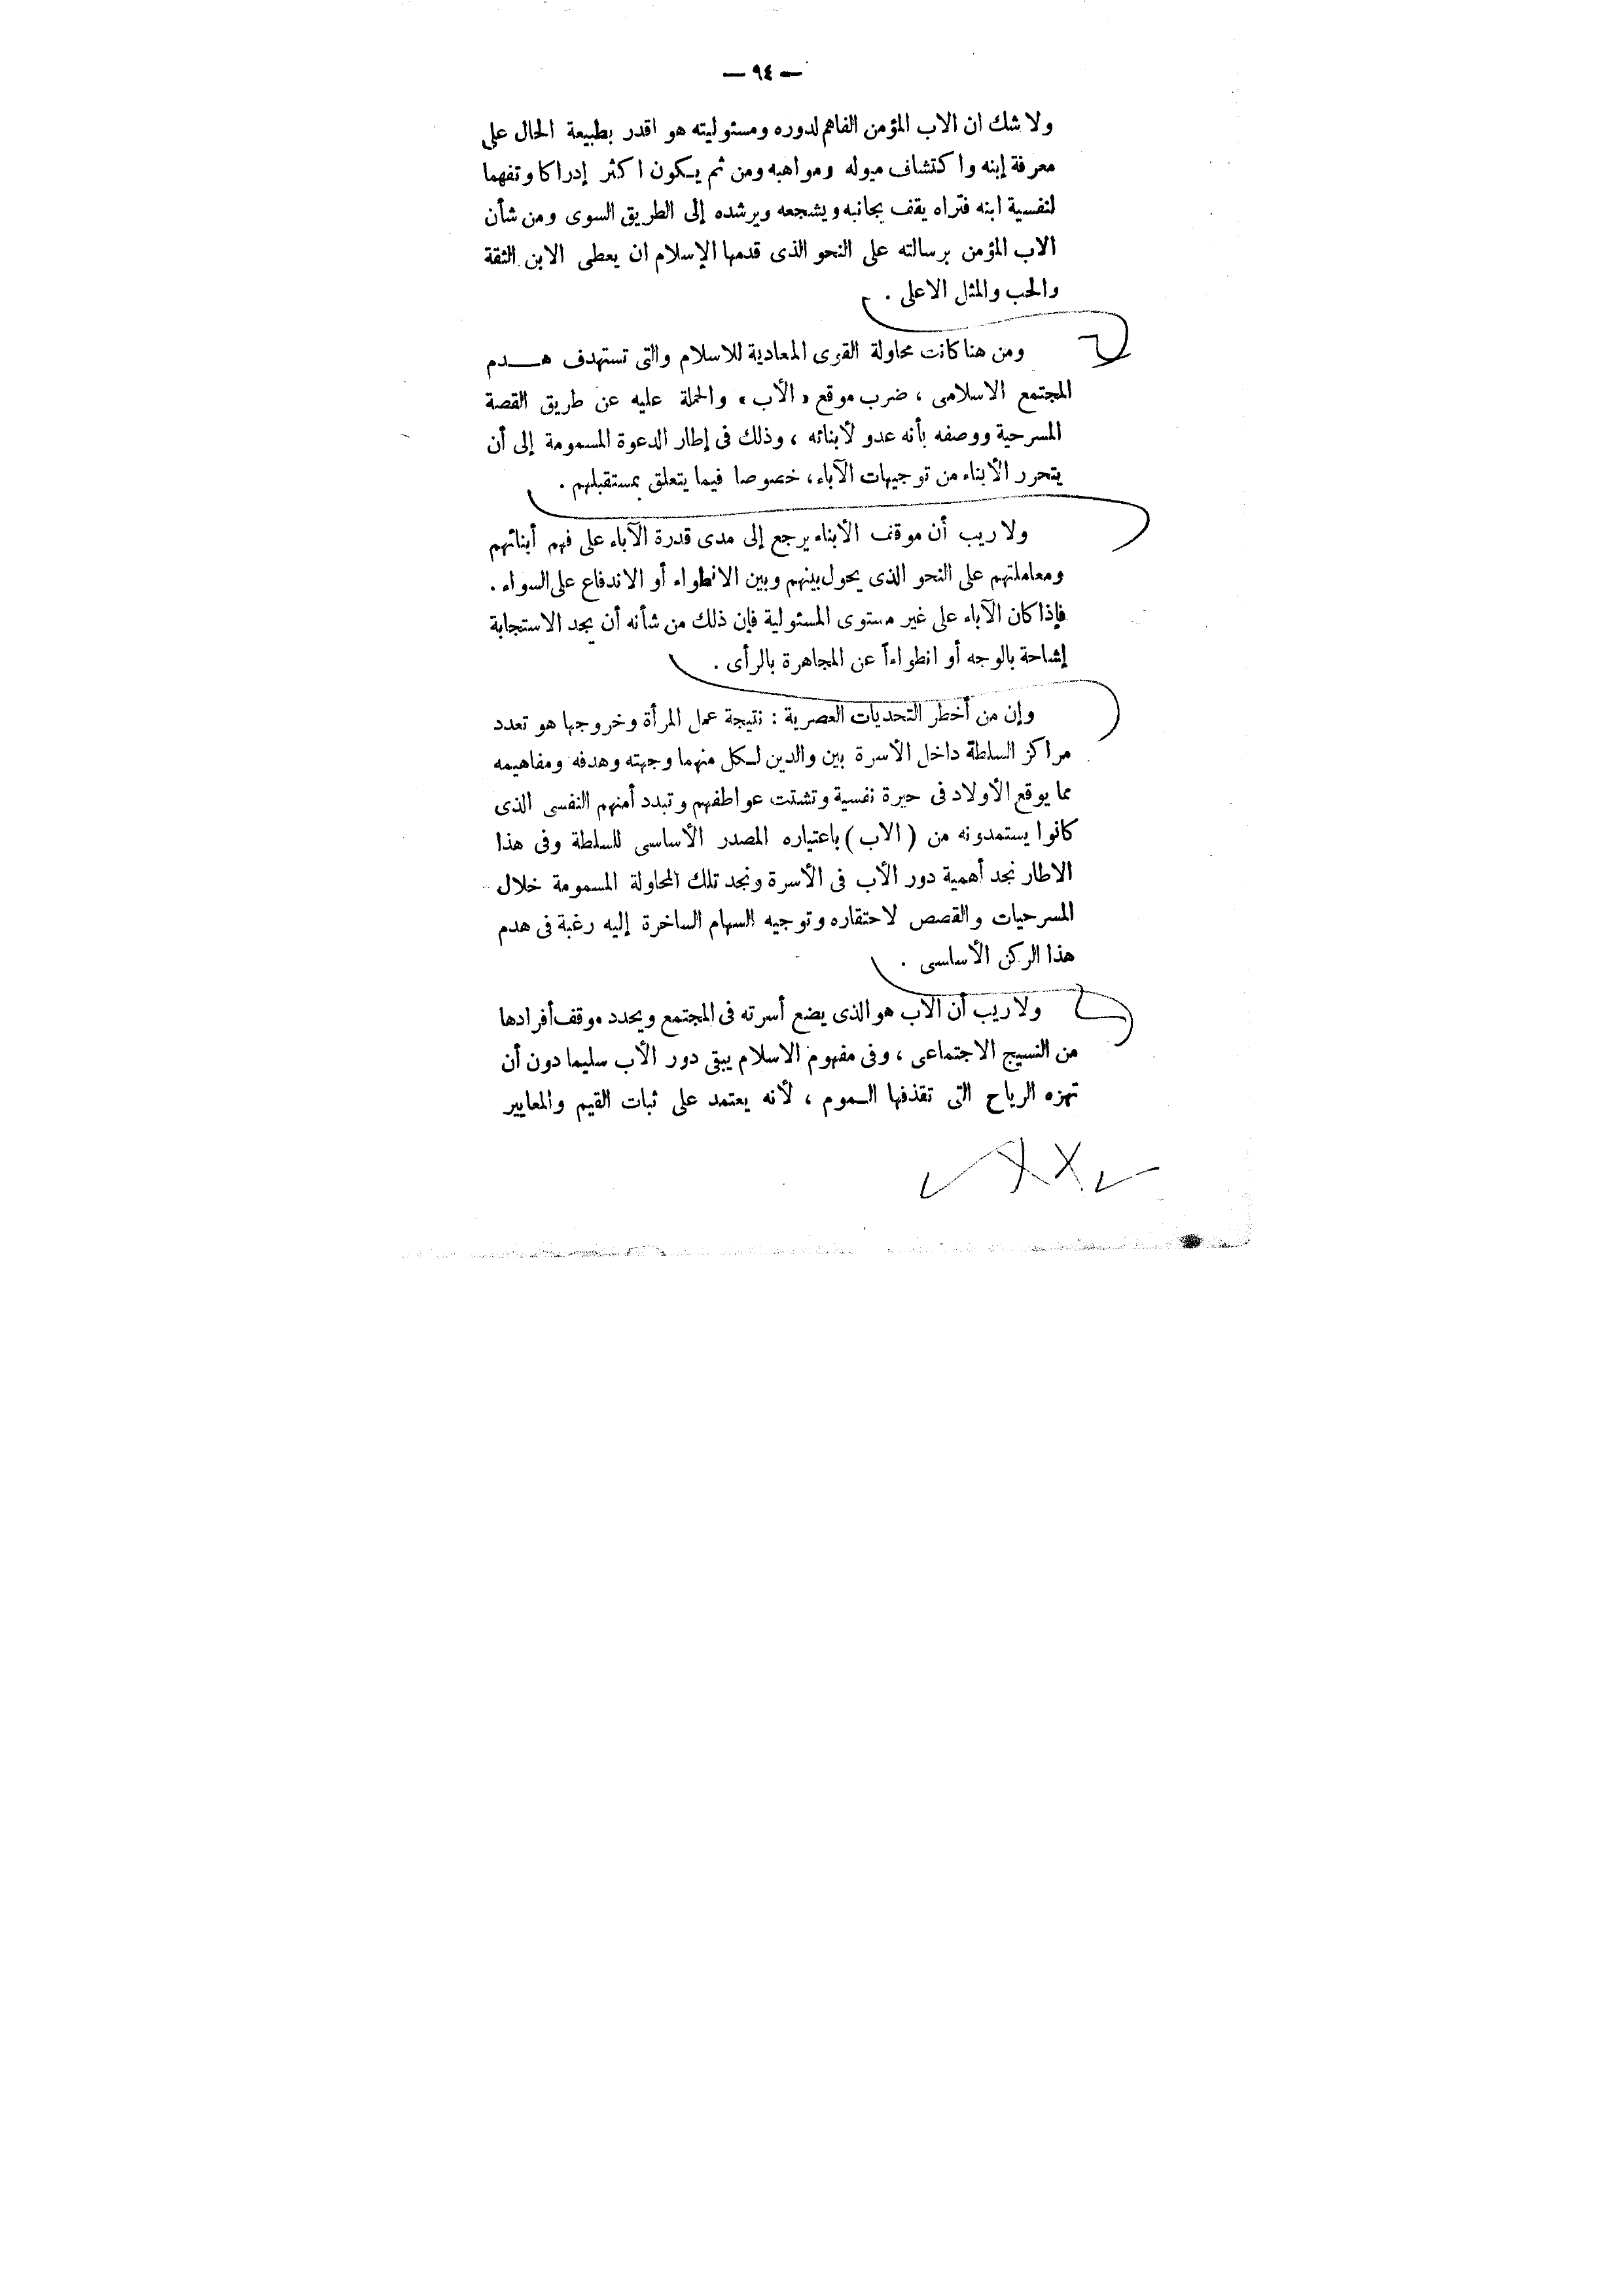 — ٩٤ —
ولا شك ان الاب المؤمن الفاهم لدوره ومسئوليته هو اقدر بطبيعة الحال على
معرفة إبنه واكتشاف ميوله ومواهبه ومن ثم يكون اكثر إدراكا وتفهما
لنفسية ابنه فتراه يقف بجانبه ويشجعه ويرشده إلى الطريق السوى ومن شأن
الاب المؤمن برسالته على النحو الذى قدمها الإسلام ان يعطى الابن الثقة
والحب والمثل الاعلى .
ومن هنا كانت محاولة القوى المعادية للاسلام والتى تستهدف هـــدم
المجتمع الاسلامى ، ضرب موقع « الأب » والحملة عليه عن طريق القصة
المسرحية ووصفه بأنه عدو لأبنائه ، وذلك فى إطار الدعوة المسمومة إلى أن
يتحرر الأبناء من توجيهات الآباء ، خصوصا فيما يتعلق بمستقبلهم .
ولا ريب أن موقف الأبناء يرجع إلى مدى قدرة الآباء على فهم أبنائهم
ومعاملتهم على النحو الذى يحول بينهم وبين الانطواء أو الاندفاع على السواء .
فإذا كان الآباء على غير مستوى المسئولية فإن ذلك من شأنه أن يجد الاستجابة
إشاحة بالوجه أو انطواءاً عن المجاهرة بالرأى .
وإن من أخطر التحديات العصرية : نتيجة عمل المرأة وخروجها هو تعدد
مراكز السلطة داخل الأسرة بين والدين لكل منهما وجهته وهدفه ومفاهيمه
مما يوقع الأولاد فى حيرة نفسية وتشتت عواطفهم وتبدد أمنهم النفسى الذى
كانوا يستمدونه من ( الاب ) باعتياره المصدر الأساسى للسلطة وفى هذا
الاطار نجد أهمية دور الأب فى الأسرة ونجد تلك المحاولة المسمومة خلال
المسرحيات والقصص لاحتقاره وتوجيه السهام الساخرة إليه رغبة فى هدم
هذا الركن الأساسى .
ولا ريب أن الأب هو الذى يضع أسرته فى المجتمع ويحدد موقف أفرادها
من النسيج الاجتماعى ، وفى مفهوم الاسلام يبقى دور الأب سليما دون أن
تهزه الرياح التى تقذفها السموم ، لأنه يعتمد على ثبات القيم والمعايير